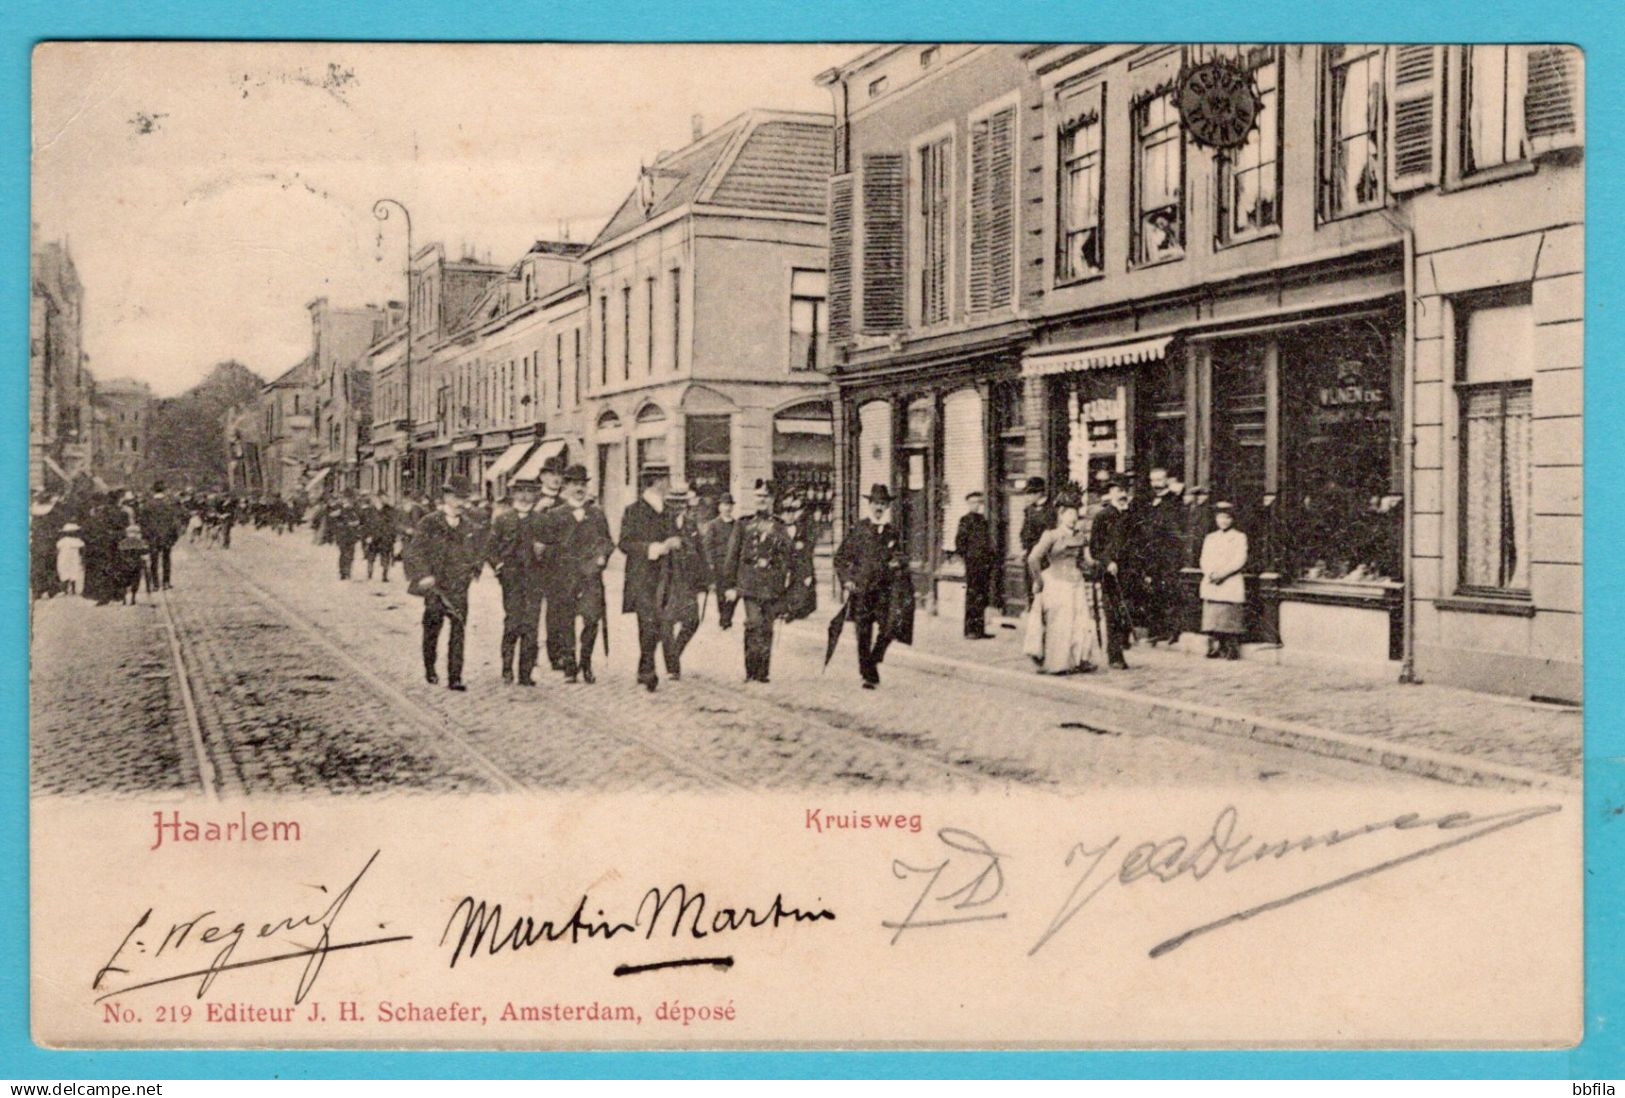 DEPOT
WIJNEN
Haarlem
Kruisweg
L. Wegerif.
Martin Martin
JD
No. 219 Editeur J. H. Schaefer, Amsterdam, déposé
www.delcampe.net
bbfila